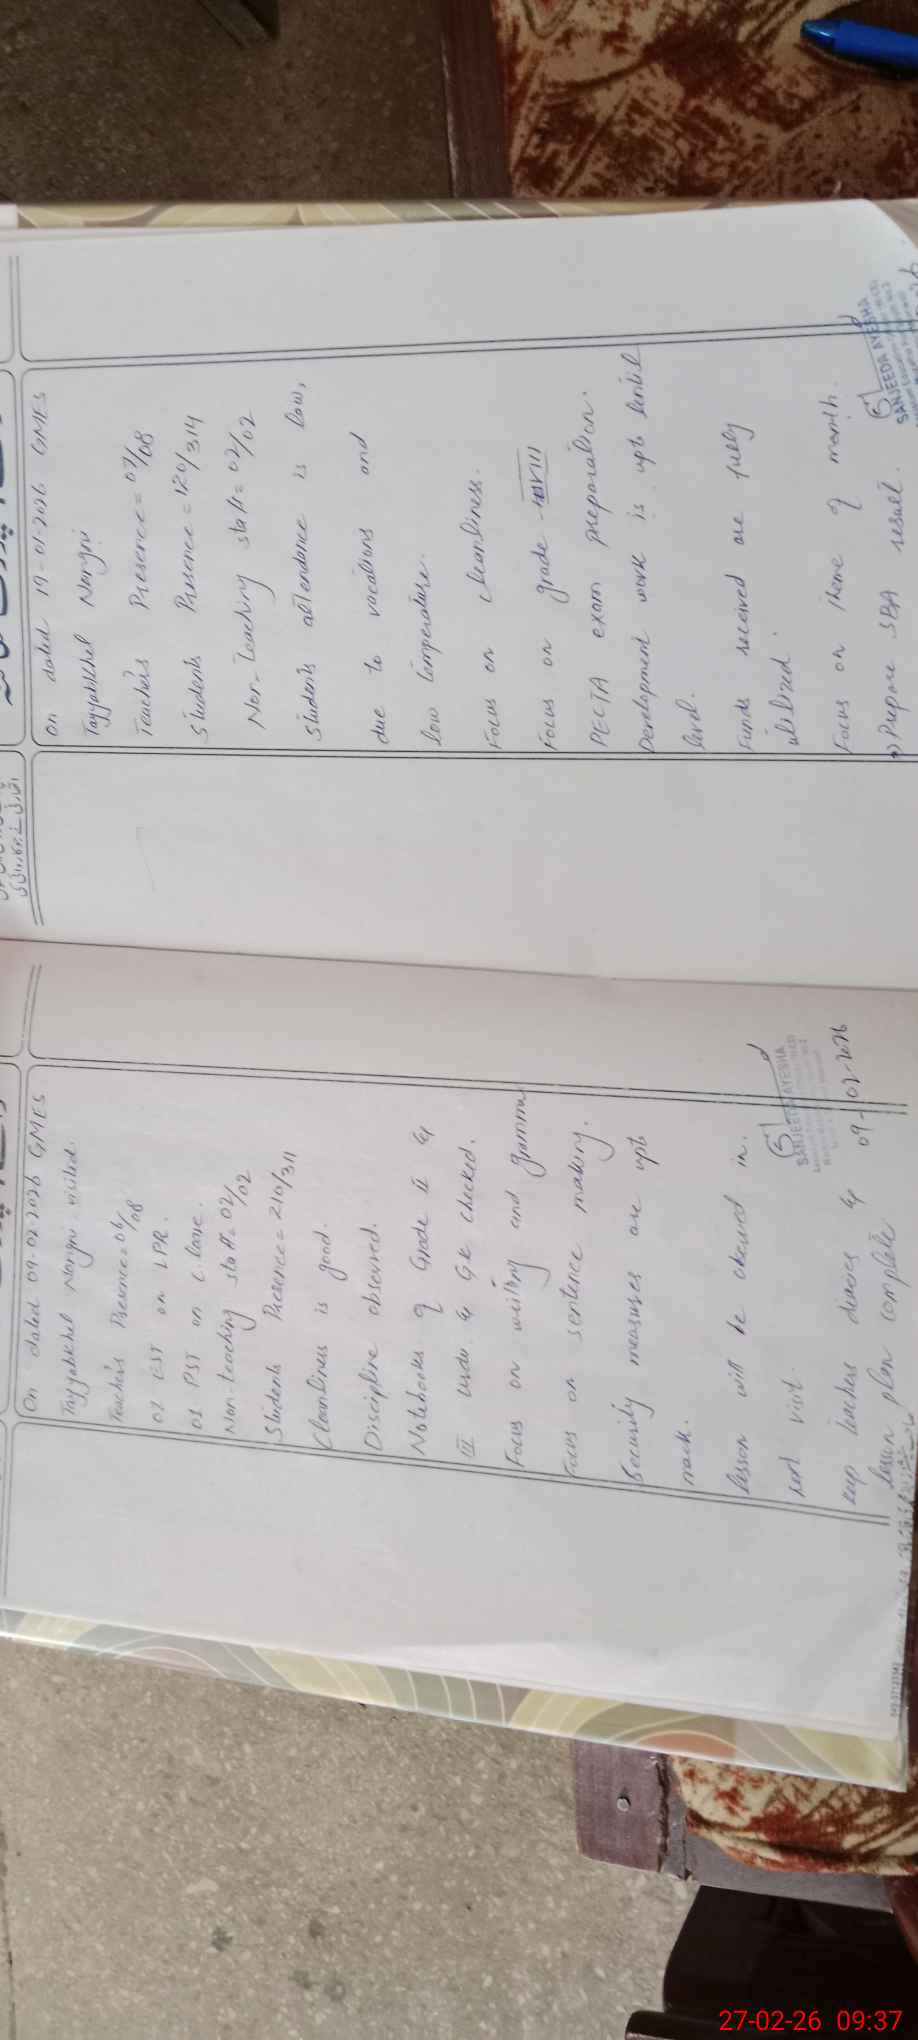 On dated 09-02-2026 GMES
Tayyabkhel Nangni visited.
Teachers Presence = 06/08
02 EST on LPR.
01 PST on C. leave.
Non-teaching staff = 02/02
Students Presence = 210/311
Cleanliness is good.
Discipline observed.
Notebooks of Grade II &
III Urdu & GK checked.
Focus on writing and grammar
Focus on sentence making.
Security measures are upto
mark.
Lesson will be observed in
next visit.
keep teachers diaries &
lesson plan complete
SANJEEDA AYESHA
09-02-2026
On dated 19-01-2026 GMES
Tayyabkhel Nangni
Teachers Presence = 07/08
Students Presence = 120/314
Non-Teaching staff = 02/02
Students attendance is low,
due to vocations and
low temperature.
Focus on cleanliness.
Focus on grade VIII
PECTA exam preparation.
Development work is upto lentil
level.
Funds received are fully
utilized.
Focus on theme of month.
Prepare SBA result.
SANJEEDA AYESHA
27-02-26 09:37